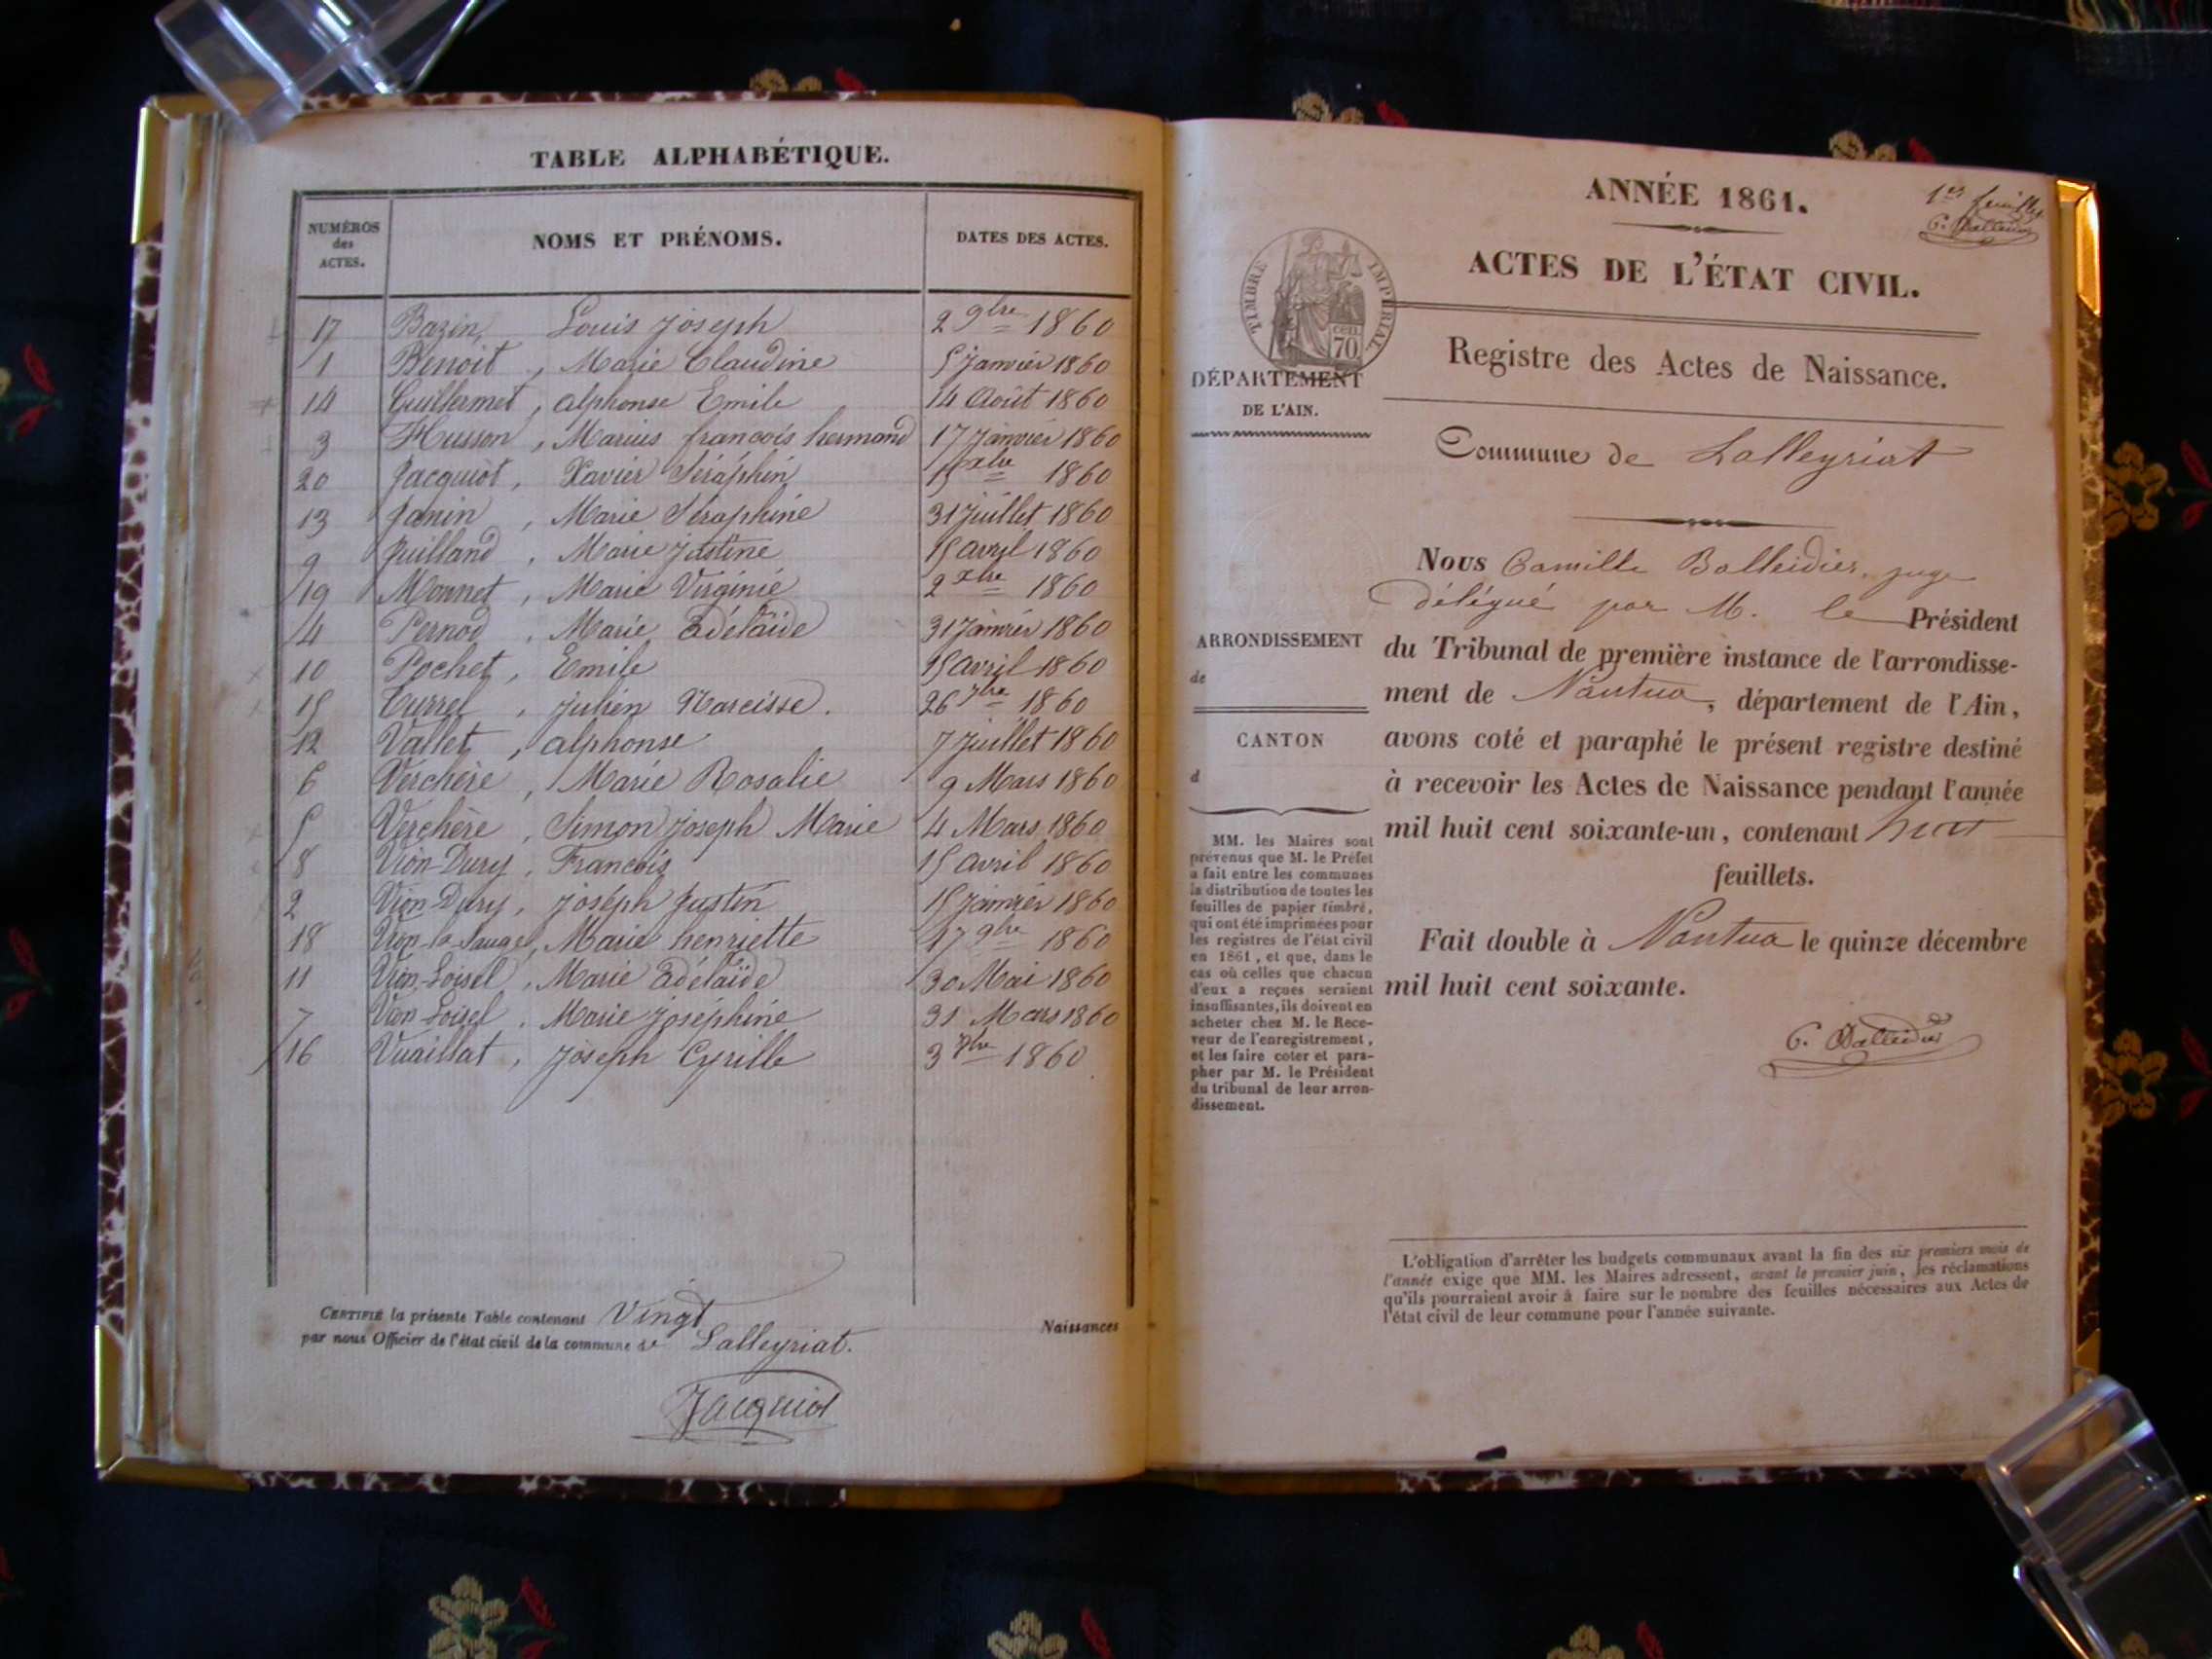 TABLE ALPHABÉTIQUE.
NUMÉROS des ACTES. NOMS ET PRÉNOMS. DATES DES ACTES.
17 Bazin, Louis Joseph 2 9bre 1860
1 Benoit, Marie Claudine 5 Janvier 1860
14 Guillermet, alphonse Emile 14 Août 1860
3 Husson, Marius françois hermand 17 Janvier 1860
20 Jacquiot, Xavier Séraphin 15 Xbre 1860
13 Janin, Marie Séraphine 31 Juillet 1860
9 Juilland, Marie Justine 15 avril 1860
19 Monnet, Marie Virginie 2 Xbre 1860
4 Pernod, Marie Adélaïde 31 Janvier 1860
10 Pochet, Emile 15 avril 1860
15 Turrel, Julien Narcisse. 26 7bre 1860
12 Vallet, alphonse 7 Juillet 1860
6 Verchère, Marie Rosalie 9 Mars 1860
5 Verchère, Simon Joseph Marie 4 Mars 1860
8 Vion-Dury, François 15 avril 1860
2 Vion-Dury, Joseph Justin 15 Janvier 1860
18 Vion-la-Sauge, Marie henriette 17 9bre 1860
11 Vion-Loisel, Marie Adélaïde 30 Mai 1860
7 Vion-Loisel, Marie Joséphine 31 Mars 1860
16 Vuaillat, Joseph Cyrille 3 1860
CERTIFIÉ la présente Table contenant Vingt Naissances
par nous Officier de l'état civil de la commune de Lalleyriat.
Jacquiot
ANNÉE 1861.
ACTES DE L'ÉTAT CIVIL.
TIMBRE IMPÉRIAL
CEN. 70
Registre des Actes de Naissance.
DÉPARTEMENT
DE L'AIN.
Commune de Lalleyriat
ARRONDISSEMENT
de
CANTON
d
MM. les Maires sont
prévenus que M. le Préfet
a fait entre les communes
la distribution de toutes les
feuilles de papier timbré,
qui ont été imprimées pour
les registres de l'état civil
en 1861, et que, dans le
cas où celles que chacun
d'eux a reçues seraient
insuffisantes, ils doivent en
acheter chez M. le Rece-
veur de l'enregistrement,
et les faire coter et para-
pher par M. le Président
du tribunal de leur arron-
dissement.
Nous Camille Balleidier, juge
délégué par M. le Président
du Tribunal de première instance de l'arrondisse-
ment de Nantua, département de l'Ain,
avons coté et paraphé le présent registre destiné
à recevoir les Actes de Naissance pendant l'année
mil huit cent soixante-un, contenant huit
feuillets.
Fait double à Nantua le quinze décembre
mil huit cent soixante.
C. Balleidier
L'obligation d'arrêter les budgets communaux avant la fin des six premiers mois de
l'année exige que MM. les Maires adressent, avant le premier juin, les réclamations
qu'ils pourraient avoir à faire sur le nombre des feuilles nécessaires aux Actes de
l'état civil de leur commune pour l'année suivante.